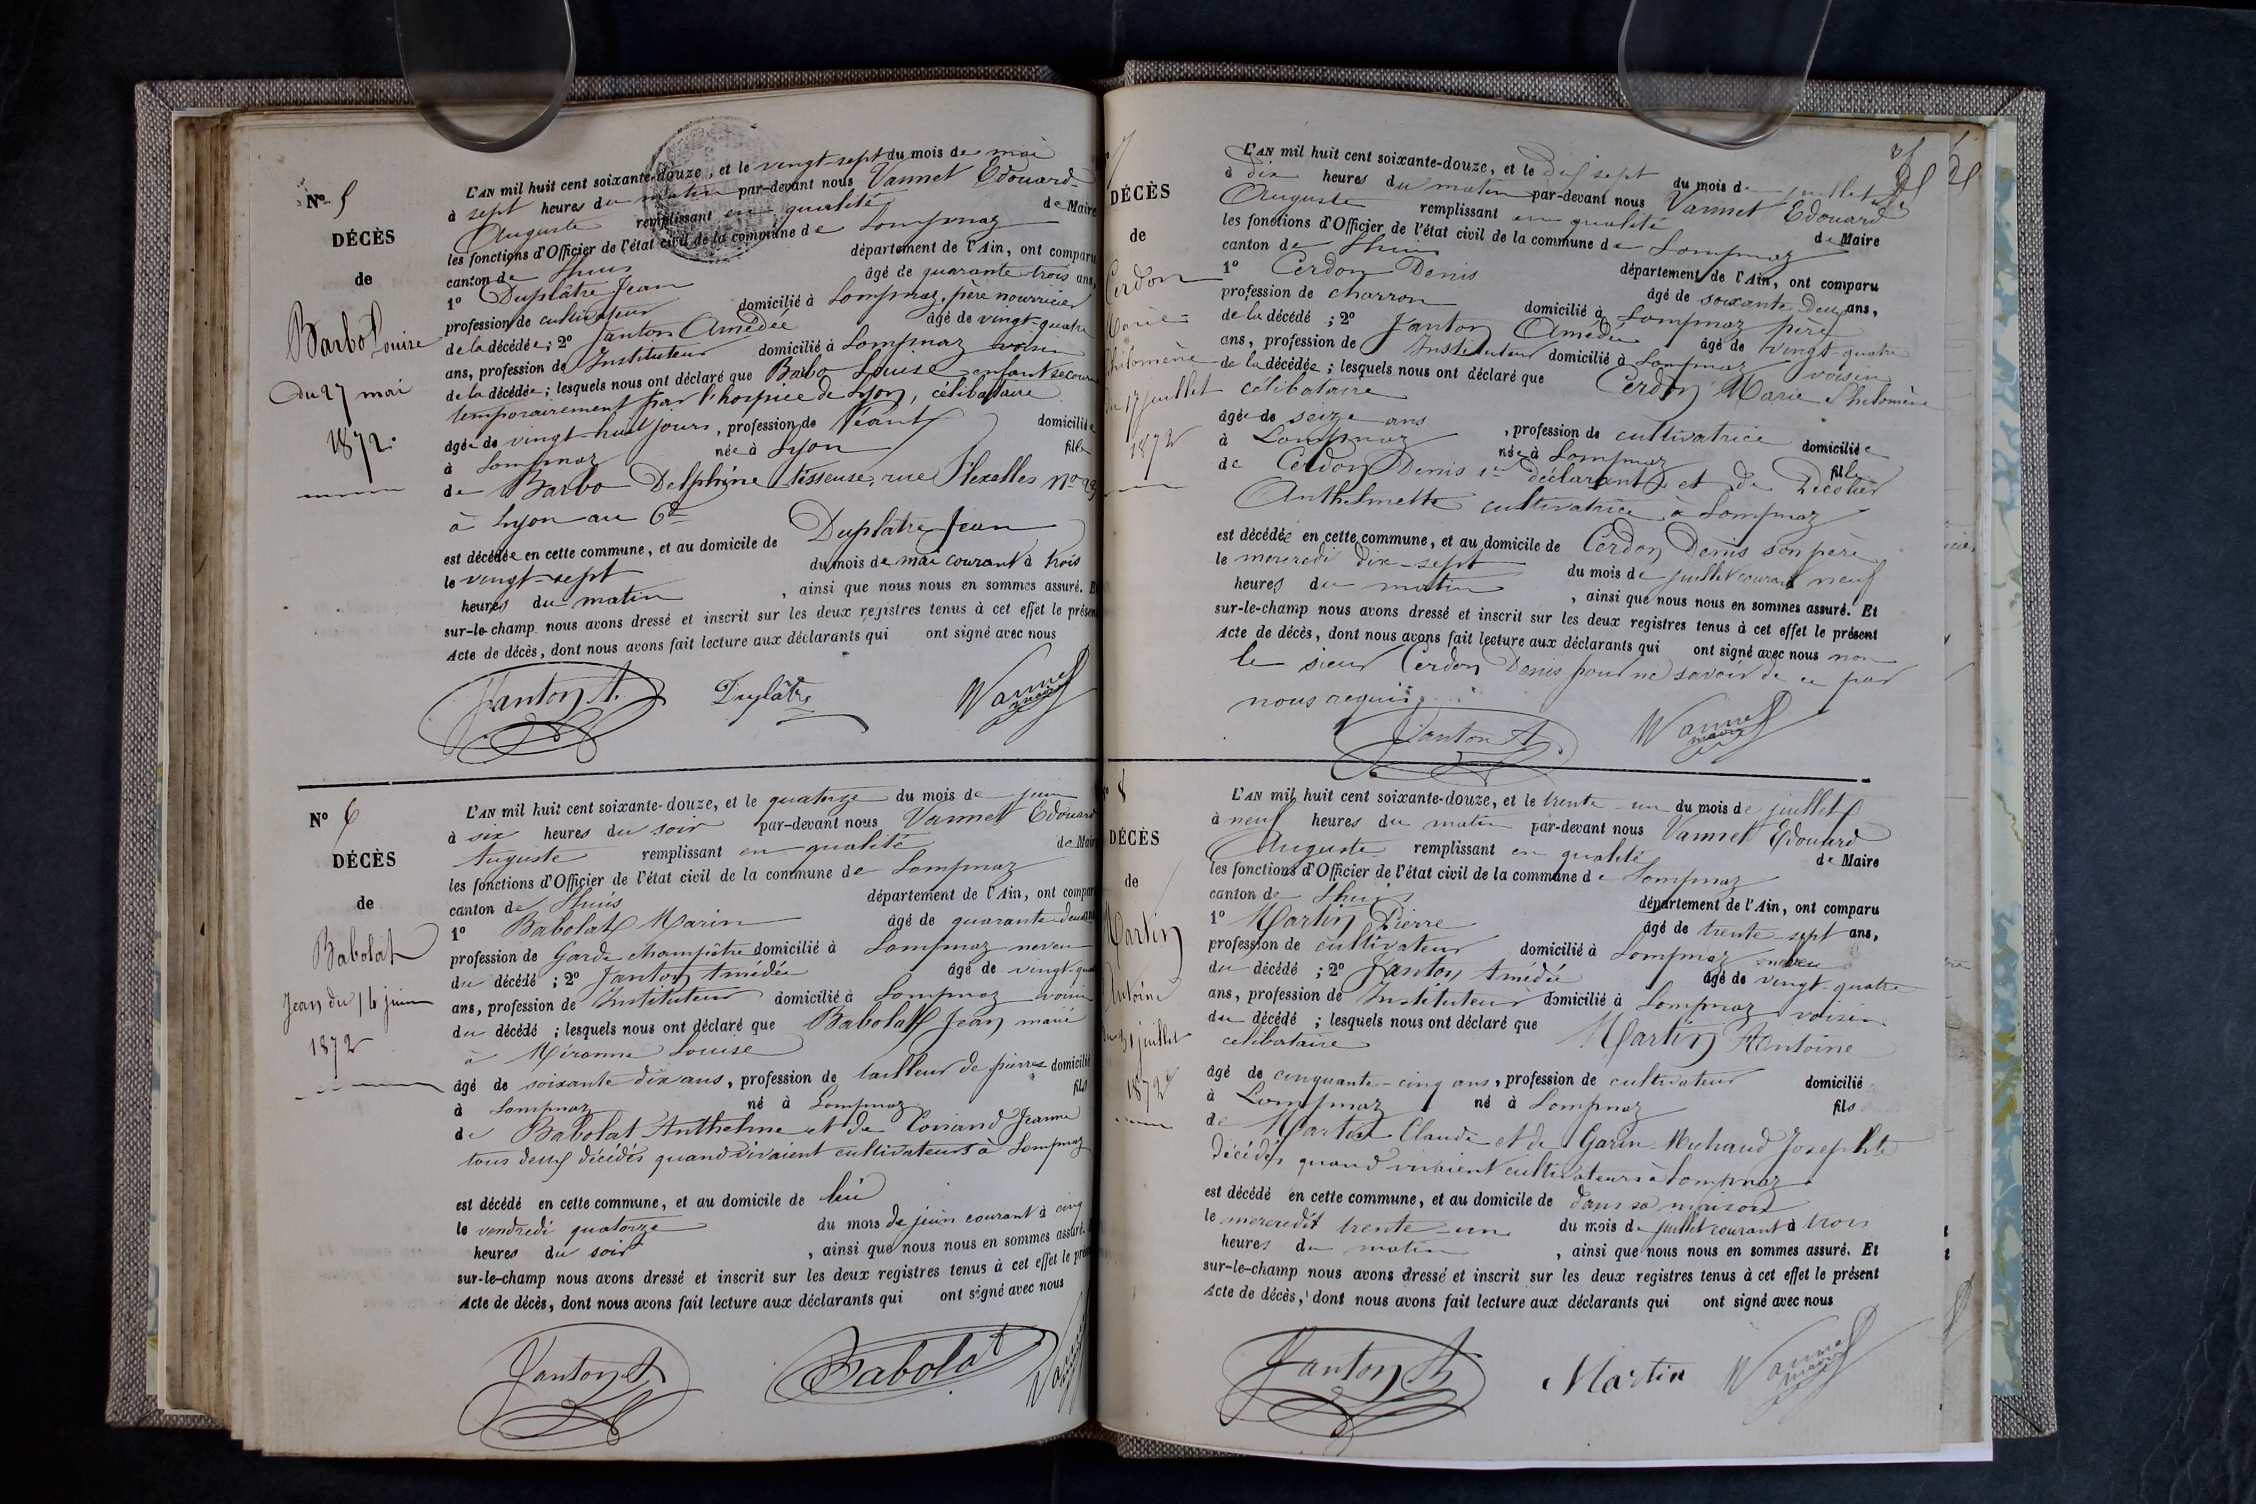 N° 5
DÉCÈS
de
Barbo Louise
du 27 mai
1872.
L'AN mil huit cent soixante-douze, et le vingt-sept du mois de mai
à sept heures du matin par-devant nous Vannet Edouard-
Auguste remplissant en qualité de Maire
les fonctions d'Officier de l'état civil de la commune de Lompnaz
canton de Lhuis département de l'Ain, ont comparu
1° Duplâtre Jean âgé de quarante trois ans,
profession de cultivateur domicilié à Lompnaz, père nourricier
de la décédée; 2° Janton Amédée âgé de vingt-quatre
ans, profession de Instituteur domicilié à Lompnaz voisin
de la décédée; lesquels nous ont déclaré que Barbo Louise enfant secourue
temporairement par l'hospice de Lyon, célibataire
âgée de vingt-huit jours, profession de Néant domiciliée
à Lompnaz née à Lyon fille
de Barbo Delphine tisseuse, rue N° 29
à Lyon au 6e
est décédée en cette commune, et au domicile de Duplâtre Jean
le vingt-sept du mois de mai courant à trois
heures du matin, ainsi que nous nous en sommes assuré. Et
sur-le-champ nous avons dressé et inscrit sur les deux registres tenus à cet effet le présent
Acte de décès, dont nous avons fait lecture aux déclarants qui ont signé avec nous
Janton A. Duplâtre Vannet maire
N° 6
DÉCÈS
de
Babolat
Jean du 14 juin
1872
L'AN mil huit cent soixante-douze, et le quatorze du mois de juin
à six heures du soir par-devant nous Vannet Edouard
Auguste remplissant en qualité de Maire
les fonctions d'Officier de l'état civil de la commune de Lompnaz
canton de Lhuis département de l'Ain, ont comparu
1° Babolat Marin âgé de quarante deux ans
profession de Garde champêtre domicilié à Lompnaz neveu
du décédé; 2° Janton Amédée âgé de vingt-quatre
ans, profession de Instituteur domicilié à Lompnaz voisin
du décédé; lesquels nous ont déclaré que Babolat Jean marié
à Louise
âgé de soixante dix ans, profession de tailleur de pierres domicilié
à Lompnaz né à Lompnaz fils
de Babolat Anthelme et de Jeanne
tous deux décédés quand vivaient cultivateurs à Lompnaz
est décédé en cette commune, et au domicile de lui
le vendredi quatorze du mois de juin courant à cinq
heures du soir, ainsi que nous nous en sommes assuré.
sur-le-champ nous avons dressé et inscrit sur les deux registres tenus à cet effet le présent
Acte de décès, dont nous avons fait lecture aux déclarants qui ont signé avec nous
Janton A. Babolat Vannet
7
DÉCÈS
de
Cerdon
Marie-
Philomène
du 17 juillet
1872
L'AN mil huit cent soixante-douze, et le dix sept du mois de juillet
à dix heures du matin par-devant nous Vannet Edouard
Auguste remplissant en qualité de Maire
les fonctions d'Officier de l'état civil de la commune de Lompnaz
canton de Lhuis département de l'Ain, ont comparu
1° Cerdon Denis âgé de soixante deux ans,
profession de charron domicilié à Lompnaz père
de la décédé; 2° Janton Amédée âgé de vingt-quatre
ans, profession de Instituteur domicilié à Lompnaz voisin
de la décédée; lesquels nous ont déclaré que Cerdon Marie Philomène
célibataire
âgée de seize ans, profession de cultivatrice domiciliée
à Lompnaz née à Lompnaz fille
de Cerdon Denis 1er déclarant et de
Anthelmette cultivatrice à Lompnaz
est décédée en cette commune, et au domicile de Cerdon Denis son père
le mercredi dix-sept du mois de juillet courant neuf
heures du matin, ainsi que nous nous en sommes assuré. Et
sur-le-champ nous avons dressé et inscrit sur les deux registres tenus à cet effet le présent
Acte de décès, dont nous avons fait lecture aux déclarants qui ont signé avec nous non
le sieur Cerdon Denis pour ne savoir de ce par
nous requis
Janton A. Vannet maire
8
DÉCÈS
de
Martin
Antoine
du 31 juillet
1872
L'AN mil huit cent soixante-douze, et le trente-un du mois de juillet
à neuf heures du matin par-devant nous Vannet Edouard
Auguste remplissant en qualité de Maire
les fonctions d'Officier de l'état civil de la commune de Lompnaz
canton de Lhuis département de l'Ain, ont comparu
1° Martin Pierre âgé de trente-sept ans,
profession de cultivateur domicilié à Lompnaz neveu
du décédé; 2° Janton Amédée âgé de vingt-quatre
ans, profession de Instituteur domicilié à Lompnaz voisin
du décédé; lesquels nous ont déclaré que Martin Antoine
célibataire
âgé de cinquante-cinq ans, profession de cultivateur domicilié
à Lompnaz né à Lompnaz fils
de Martin Claude et de Garin-Michaud Josephte
décédés quand vivaient cultivateurs à Lompnaz
est décédé en cette commune, et au domicile de dans sa maison
le mercredi trente-un du mois de juillet courant à trois
heures du matin, ainsi que nous nous en sommes assuré. Et
sur-le-champ nous avons dressé et inscrit sur les deux registres tenus à cet effet le présent
Acte de décès, dont nous avons fait lecture aux déclarants qui ont signé avec nous
Janton A. Martin Vannet maire